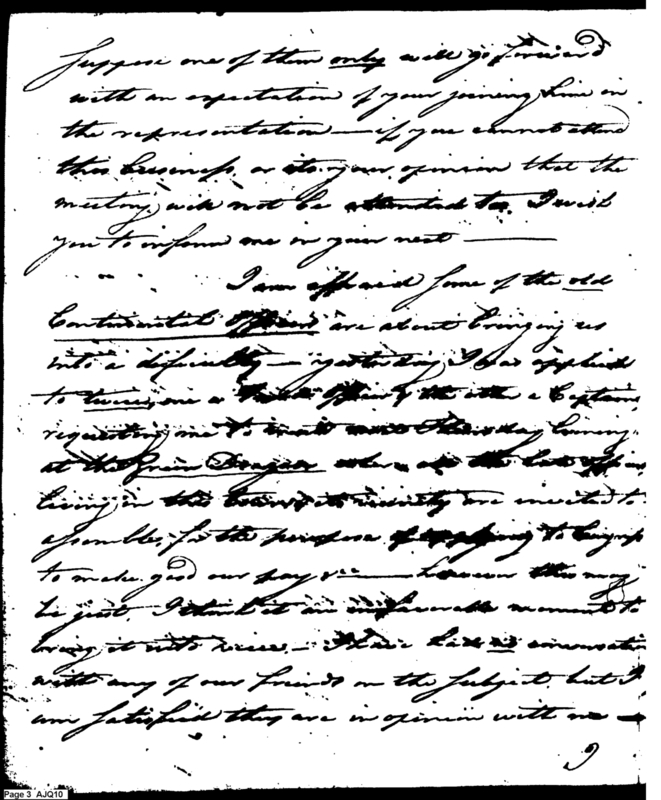 Suppose one of them only will go forward
with an expectation of your joining him in
the representation — if you cannot attend
this business or its your opinion that the
meeting will not be attended to. I wish
you to inform me in your next —
I am affraid some of the old
Continental Officers are about bringing us
into a difficulty — yesterday I was applied
to twice, one a Officer & the other a Captain
requesting me to meet next Thursday Evening
at the Green Dragon where all the late officers
living in this town & its vicinity are invited to
assemble, for the purpose of applying to Congress
to make good our pay &c — however this may
be just, I think it an unfavorable moment to
bring it into view. — I have had no conversation
with any of our friends on the subject but I
am satisfied they are in opinion with me —
Page 3 AJQ10